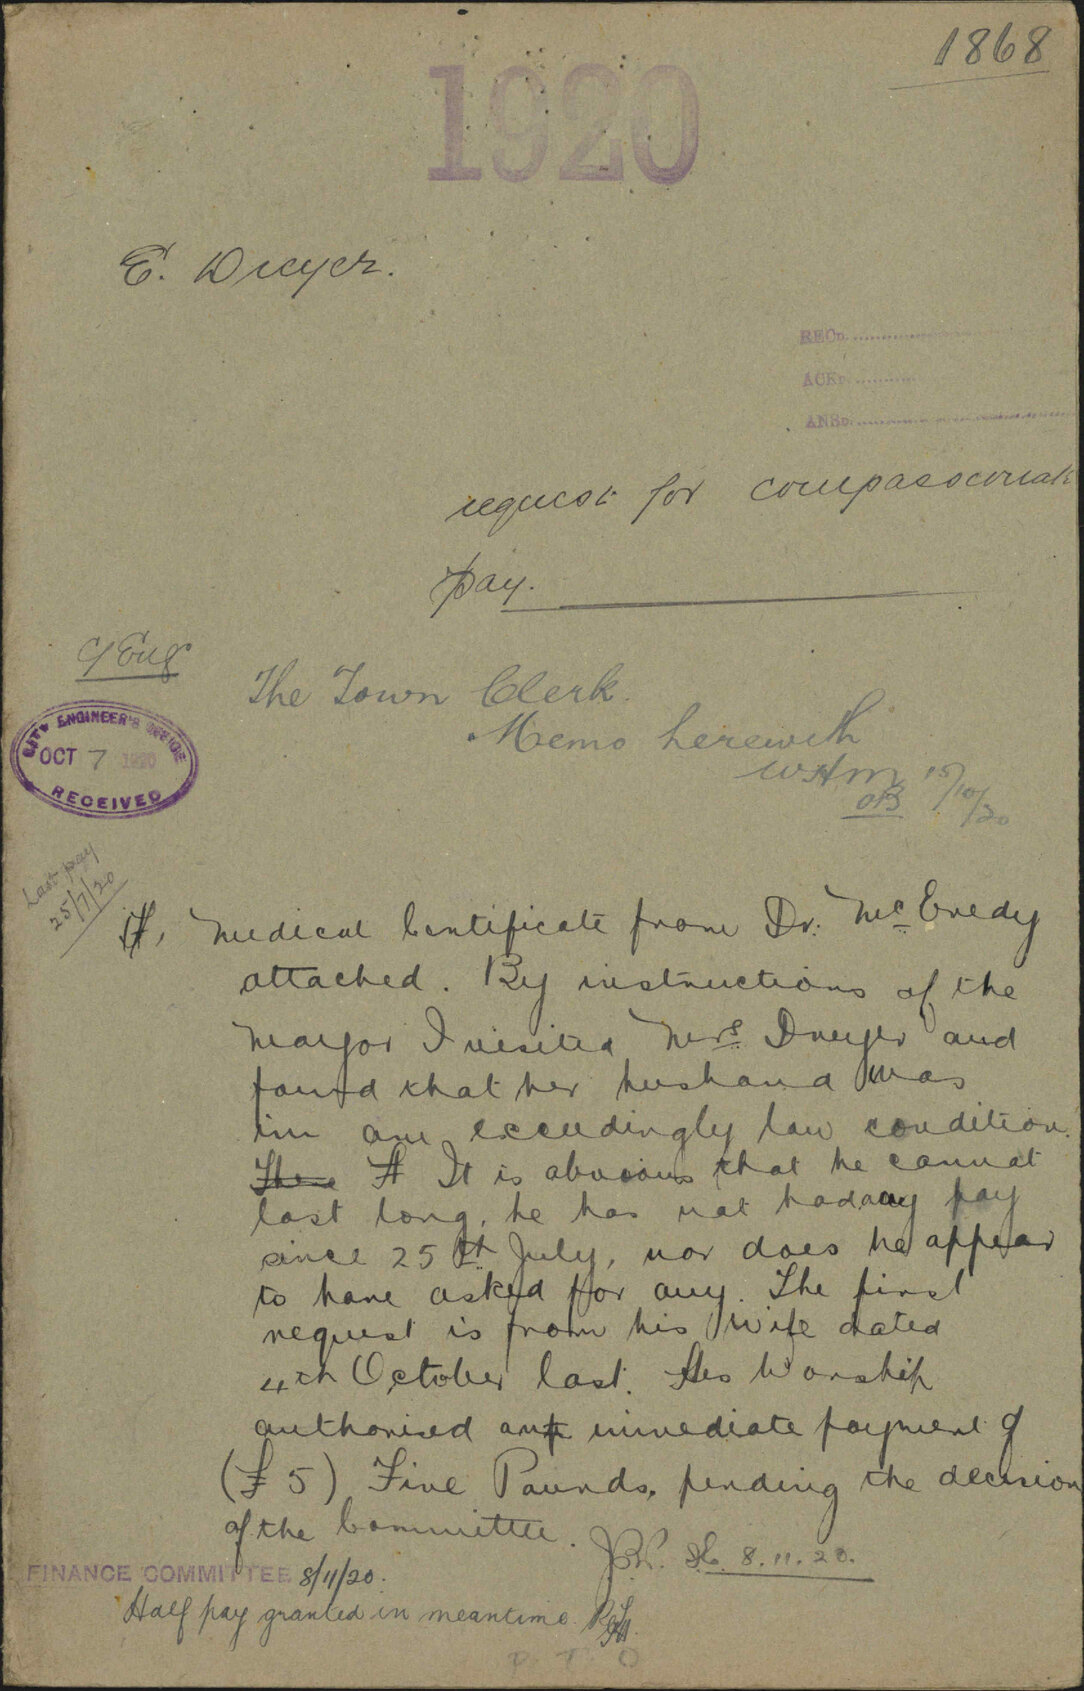 1868
1920
E. Dwyer.
RECD.
ACKD.
ANSD.
request for compassionate
pay.
C/Eng
The Town Clerk.
Memo herewith
WHM 15/10/20
OB
CITY ENGINEER'S OFFICE
OCT 7 1920
RECEIVED
Last pay
25/7/20
Medical Certificate from Dr. McEredy
attached. By instructions of the
Mayor I visited Mrs. Dwyer and
found that her husband was
in an exceedingly low condition.
There It is obvious that he cannot
last long, he has not had any pay
since 25th July, nor does he appear
to have asked for any. The first
request is from his wife dated
4th October last. His Worship
authorised an immediate payment of
(£5) Five Pounds, pending the decision
of the Committee.
8.11.20.
FINANCE COMMITTEE 8/11/20.
Half pay granted in meantime.
P T O